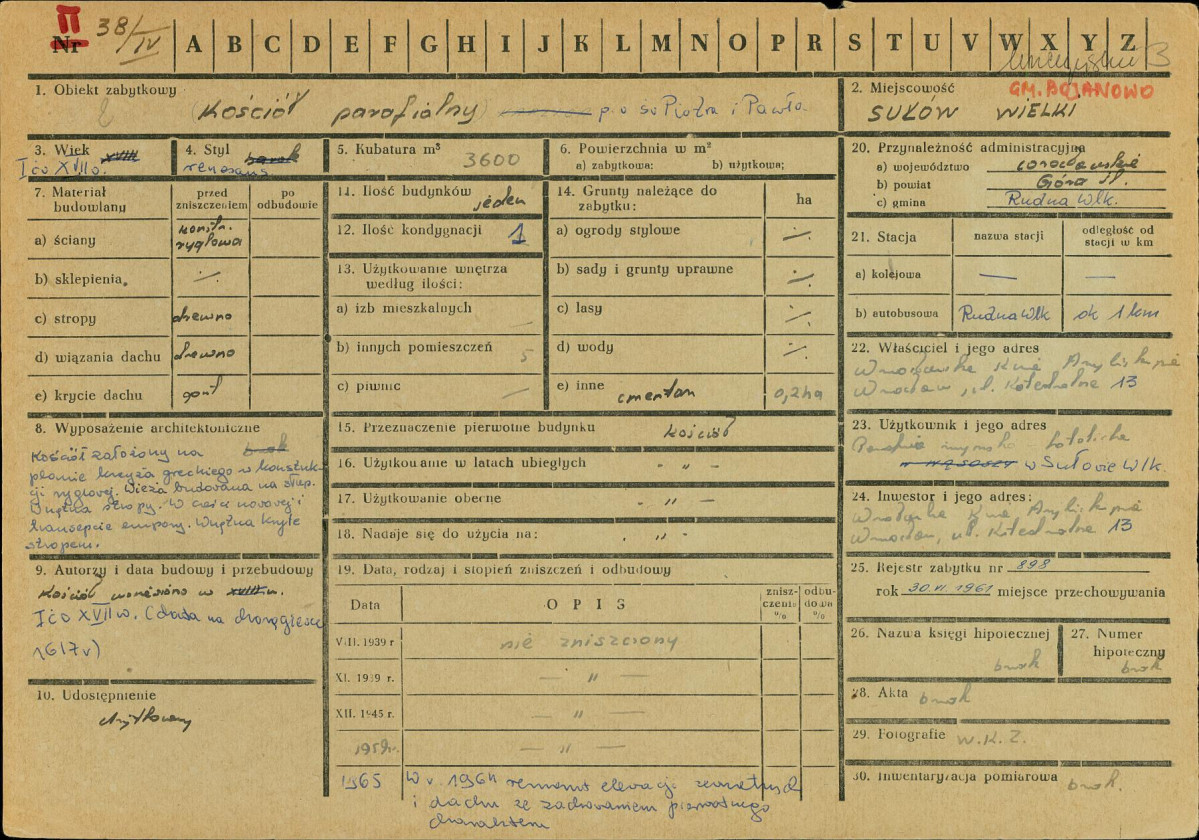 II
Nr 38/IV A B C D E F G H I J K L M N O P R S T U V W X Y Z
1. Obiekt zabytkowy
(Kościół parafialny) p.o św Piotra i Pawła
2. Miejscowość
GM. BOJANOWO
SUŁÓW WIELKI
3. Wiek XVIII
I ćw XVII w.
4. Styl barok
renesans
5. Kubatura m³ 3600
6. Powierzchnia w m²
a) zabytkowa: b) użytkowa;
7. Materiał budowlany
przed zniszczeniem
po odbudowie
a) ściany konstr. ryglowa
b) sklepienia. -/-
c) stropy drewno
d) wiązania dachu drewno
e) krycie dachu gont
8. Wyposażenie architektoniczne
brak
Kościół założony na
planie krzyża greckiego w konstruk-
cji ryglowej. Wieża budowana na słup.
Wnętrza stropy. W części nawowej i
transepcie empory. Wnętrze kryte
stropem.
9. Autorzy i data budowy i przebudowy
Kościół wzniesiono w XVIII w.
I ćw XVII w. (data na chorągiewce
1617 r)
10. Udostępnienie
użytkowany
11. Ilość budynków jeden
12. Ilość kondygnacji 1
13. Użytkowanie wnętrza
według ilości:
a) izb mieszkalnych —
b) innych pomieszczeń 5
c) piwnic —
14. Grunty należące do
zabytku:
ha
a) ogrody stylowe -/-
b) sady i grunty uprawne -/-
c) lasy -/-
d) wody -/-
e) inne cmentarz 0,2 ha
15. Przeznaczenie pierwotne budynku kościół
16. Użytkowanie w latach ubiegłych - „ -
17. Użytkowanie obecne - „ -
18. Nadaje się do użycia na: - „ -
19. Data, rodzaj i stopień zniszczeń i odbudowy
Data
OPIS
znisz-
czenia
%
odbu-
dowa
%
VIII. 1939 r nie zniszczony
XI. 1939 r. — „ —
XII. 1945 r. — „ —
1959r. — „ —
1965 W r. 1964 remont elewacji zewnętrznych
i dachu ze zachowaniem pierwotnego
charakteru
20. Przynależność administracyjna
a) województwo wrocławskie
b) powiat Góra Śl.
c) gmina Rudna Wlk.
21. Stacja
nazwa stacji
odległość od
stacji w km
a) kolejowa — —
b) autobusowa Rudna Wlk ok 1 km
22. Właściciel i jego adres
Wrocław, ul. Katedralna 13
23. Użytkownik i jego adres
w Sułowie Wlk.
24. Inwestor i jego adres:
Wrocław, ul. Katedralna 13
25. Rejestr zabytku nr 898
rok 30.VI.1961 miejsce przechowywania
26. Nazwa księgi hipotecznej
brak
27. Numer
hipoteczny
brak
28. Akta brak
29. Fotografie W.K.Z.
30. Inwentaryzacja pomiarowa brak.